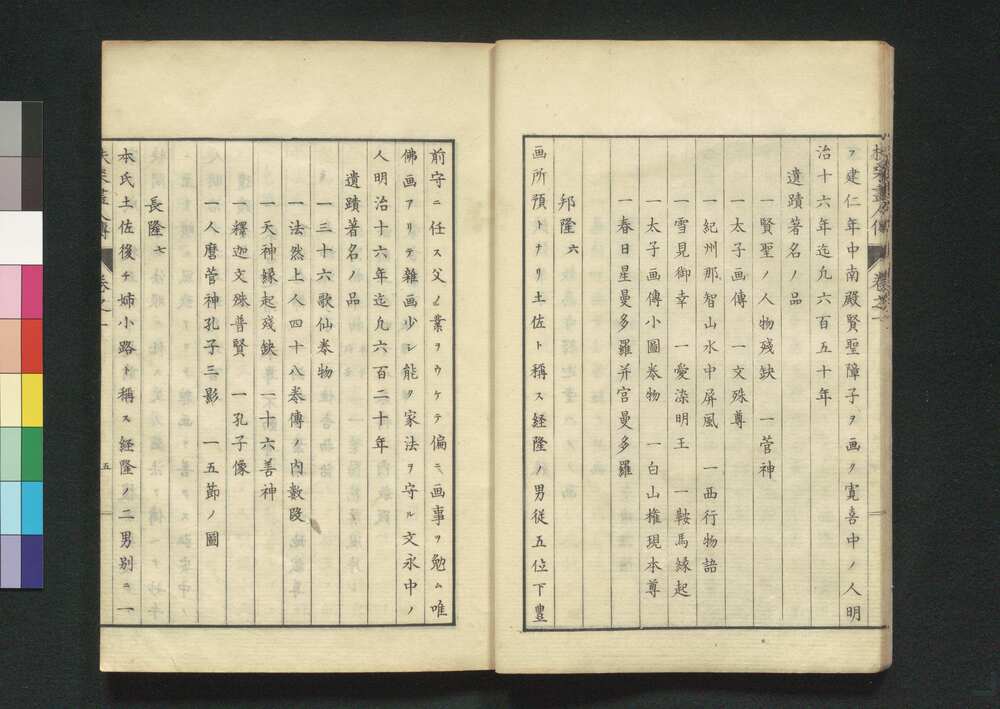 ヲ建仁年中南殿賢聖障子ヲ画ク寛喜中ノ人明
治十六年迄凡六百五十年
遺蹟著名ノ品
一賢聖ノ人物残缺　一菅神
一太子画傳　一文殊尊
一紀州那智山水中屏風　一西行物語
一雪見御幸　一愛染明王　一鞍馬縁起
一太子画傳小圖巻物　一白山権現本尊
一春日星曼多羅并宮曼多羅
邦隆 六
画所預トナリ土佐ト稱ス経隆ノ男従五位下豊
前守ニ任ス父ノ業ヲウケテ偏ニ画事ヲ勉ム唯
佛画アリテ雜画少シ能ク家法ヲ守ル文永中ノ
人明治十六年迄凡六百二十年
遺蹟著名ノ品
一三十六歌仙巻物
一法然上人四十八巻傳ノ内数段
一天神縁起残缺　一十六善神
一釋迦文殊普賢　一孔子像
一人麿菅神孔子三影　一五節ノ圖
長隆 七
本氏土佐後チ姉小路ト稱ス経隆ノ二男別ニ一
五